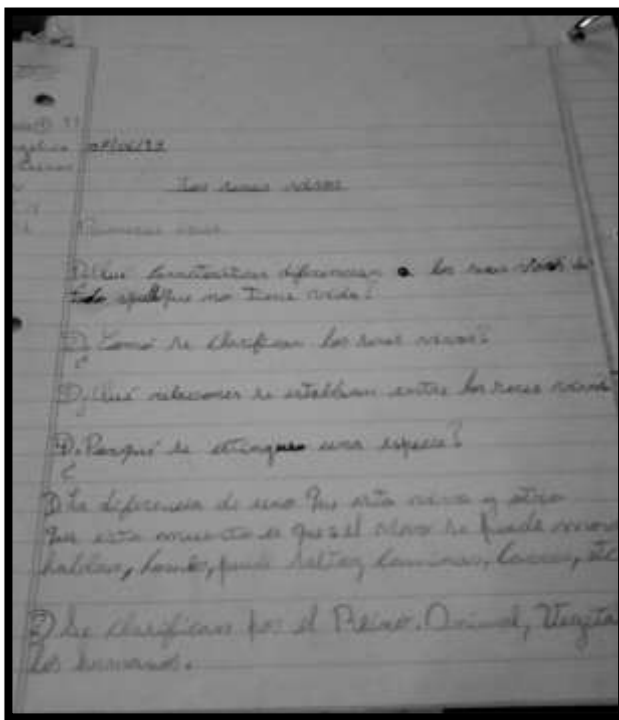 Los seres vivos
1) ¿Qué características diferencian a los seres vivos de
todo aquello que no tiene vida?
2) ¿Como se clasifican los seres vivos?
3) ¿Qué relaciones se establecen entre los seres vivos?
4) ¿Porqué se extingue una especie?
1) La diferencia de uno que esta vivo y otro
que esta muerto es que el vivo se puede mover
hablar, puede saltar, caminar, correr, etc
2) Se clasifican por el Reino. Animal, Vegetal
los humanos.